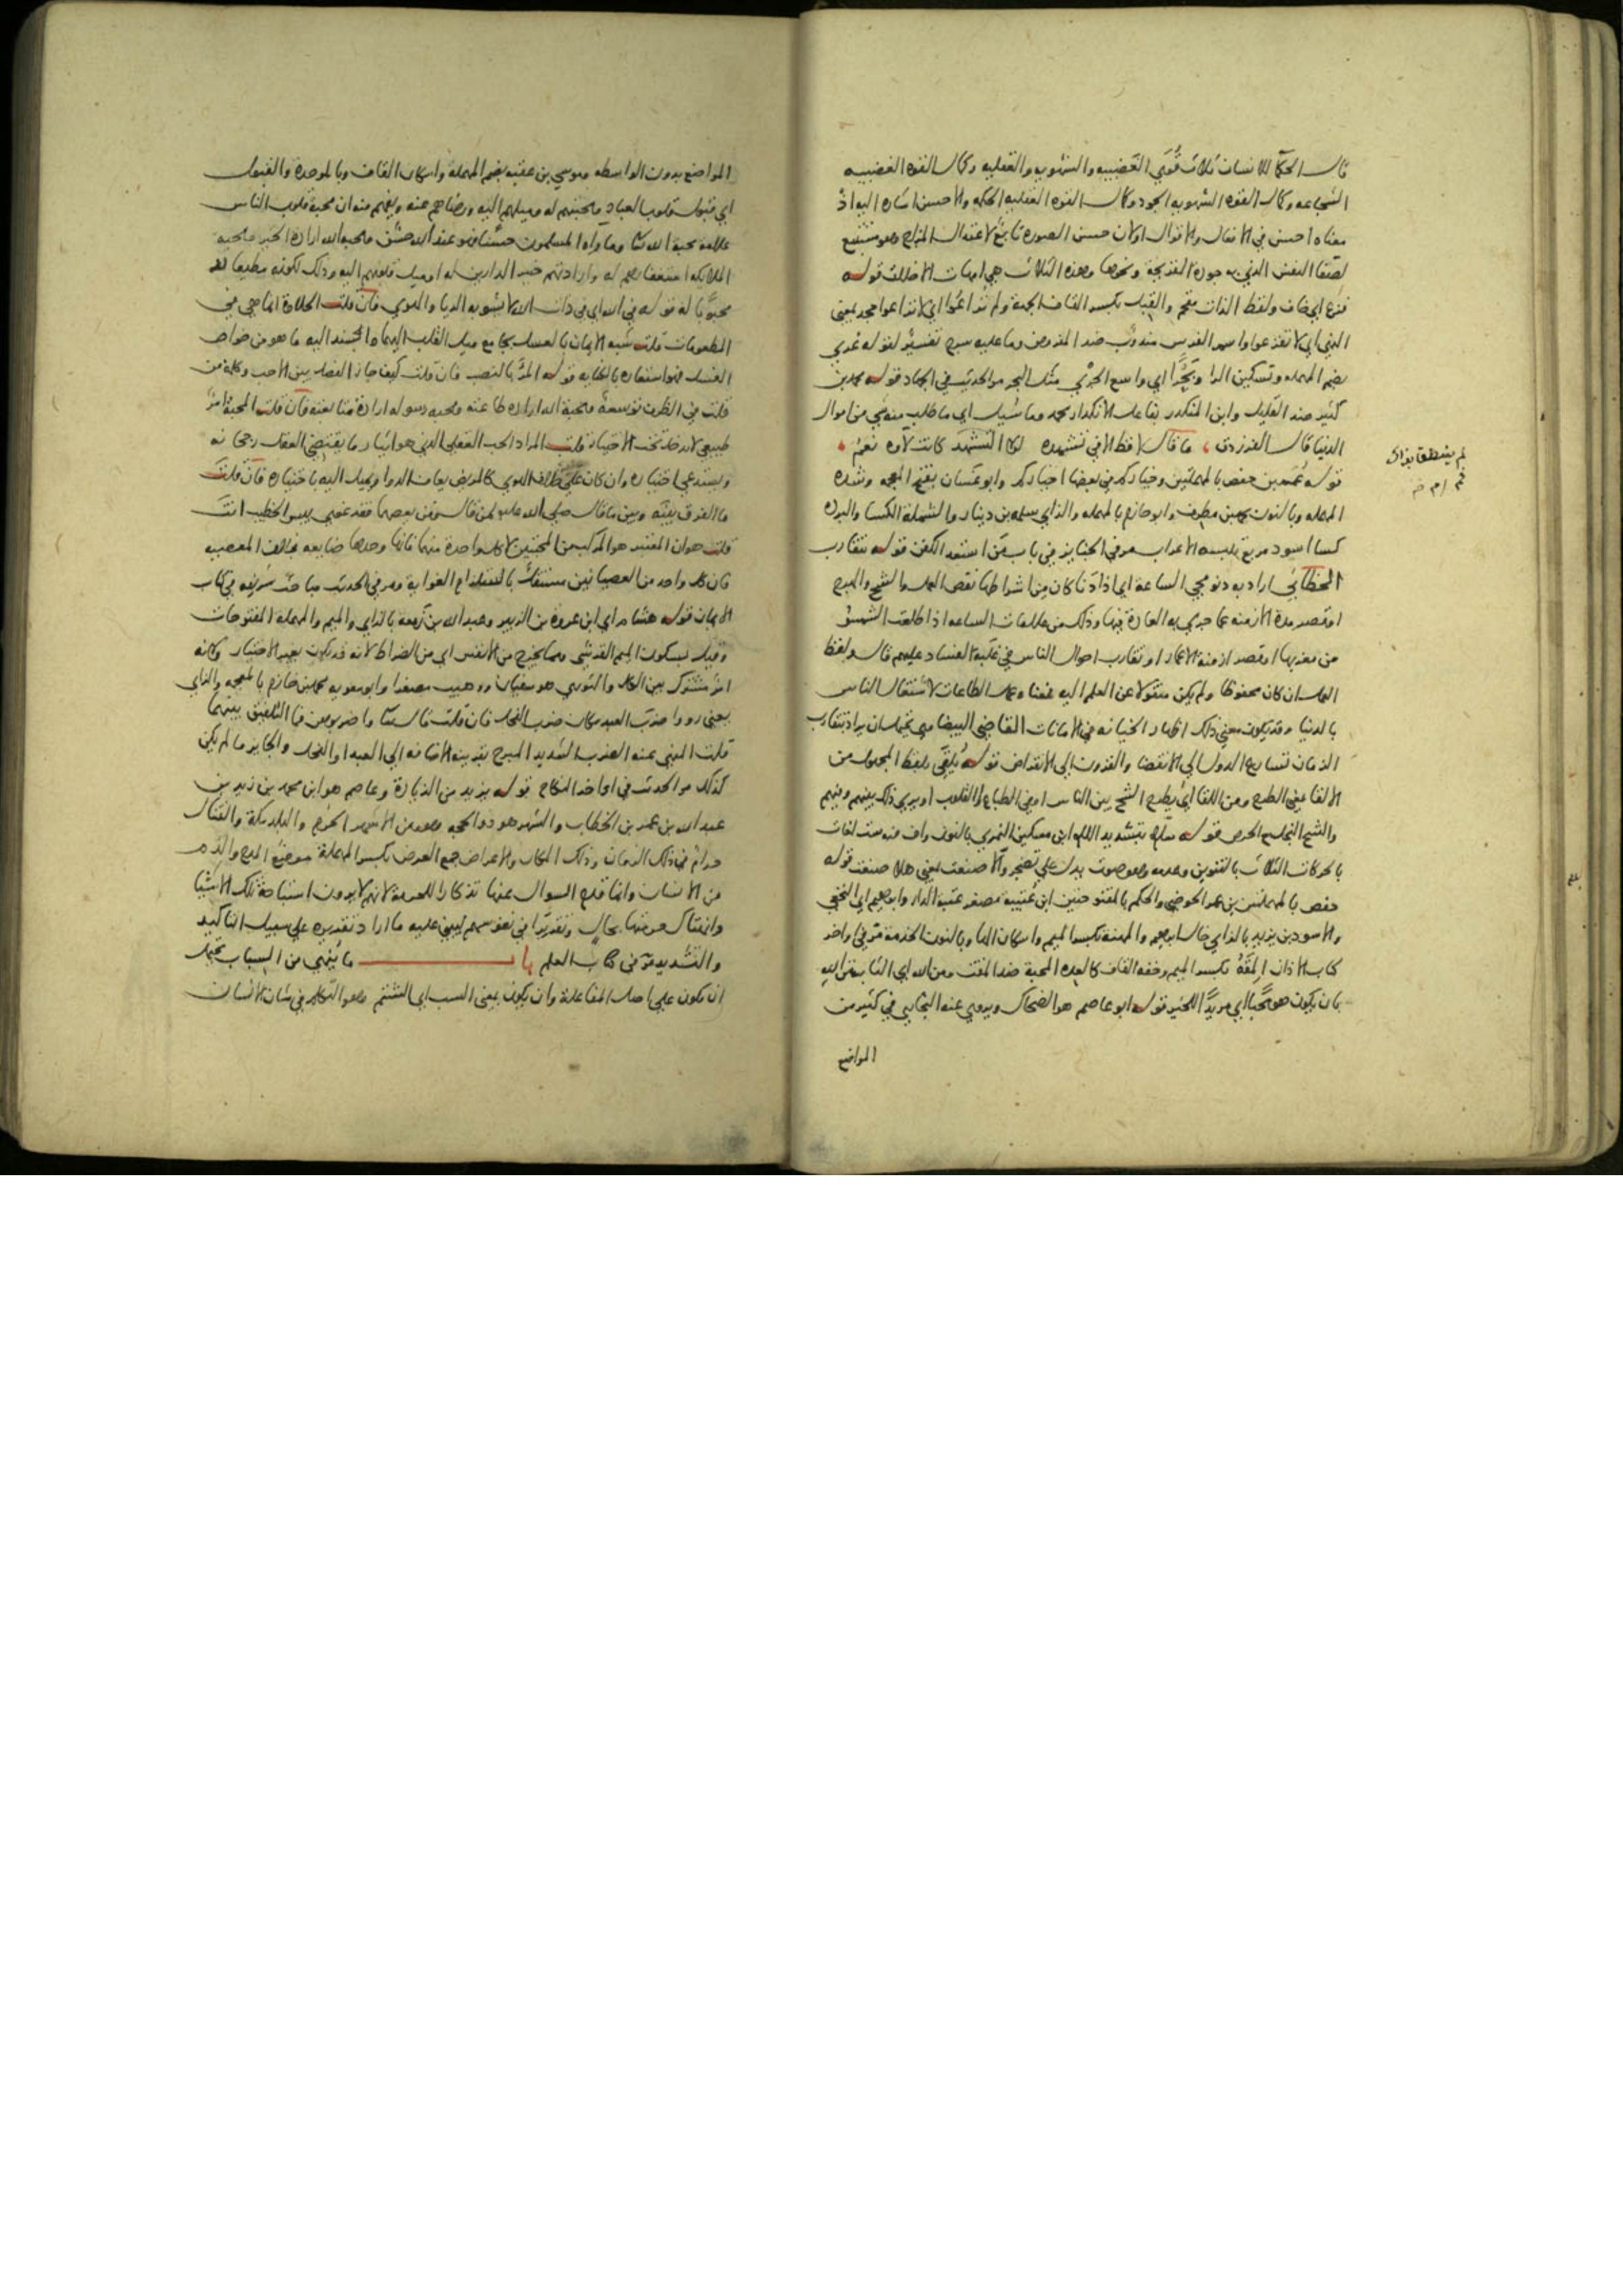 قال الحكما للانسان ثلاث قوى الغضبيه والشهويه والعقليه وكمال القوه الغضبيه
الشجاعه وكمال القوه الشهويه الجود وكمال القوه العقليه الحكمه والاحسن اشاره اليه اذ
معناه احسن في الافعال والاقوال اولان حسن الصورة تابع لاعتدال المزاج وهو مستتبع
لصفا النفس الذي به جودة القريحة ونحوها وهذه الثلاث هي امهات الاخلاق قوله
فزع اي خاف ولفظ الذات مقحم والقبل بكسر القاف الجهة ولم تراعوا اي لا تراعوا جحد بمعنى
النهي اي لا تفزعوا واسم الفرس مندوب ضد المفروض وما عليه سرج تفسير لقوله عري
بضم المهمله وتسكين الرا وبحرا اي واسع الجري مثل البحر مر الحديث في الجهاد قوله محمد بن
كثير ضد القليل وابن المنكدر بفاعل الانكدار محمد وما سئيل اي ما طلب منه شي من اموال
الدنيا قال الفرزدق ، ما قال لا قط الا في تشهده لولا التشهد كانت لاوه نعم ،
قوله عمر بن حفص بالمهملتين وخياركم في بعضها اخياركم وابو غسان بفتح المعجمه وشدة
المهمله وبالنون محمد بن مطرف وابو حازم بالمهمله والزاي سلمه بن دينار والشملة الكسا والبردة
كسا اسود مربع يلبسه الاعراب مر في الجنايز في باب من استعد الكفن قوله يتقارب
الخطابي اراد به دنو مجي الساعة اي اذا دنا كان من اشراطها نقص العمل والشح والهرج
او قصر مدة الازمنه عما جري به العادة فيها وذلك من علامات الساعه اذا طلعت الشمس
من مغربها او قصر ازمنة الاعمار او تقارب احوال الناس في غلبة الفساد عليهم قال ولفظ
العمل ان كان محفوظا ولم يكن منقولا عن العلم اليه فمعناه عمل الطاعات لاشتغال الناس
بالدنيا وقد يكون معنى ذلك اظهار الخيانه في الامانات القاضي البيضاوي يحتمل ان يراد بتقارب
الزمان تسارع الدول الى الانقضا والقرون الى الانقراض قوله يلقى بلفظ المجهول من
الالقا بمعنى الطرح ومن اللقا اي يطرح الشح بين الناس او في الطباع والقلوب او يري ذلك بينهم وفيهم
والشح البخل مع الحرص قوله سلام بتشديد اللام ابن مسكين النمري بالنون واف فيه ست لغات
بالحركات الثلاث بالتنوين وعدمه وهو صوت يدل على تضجر والا صنعت بمعنى هلا صنعت قوله
حفص بالمهملتين بن عمر الحوضي والحكم بالمفتوحتين ابن عتيبة مصغر عتبة الدار وابراهيم اي النخعي
والاسود بن يزيد بالزاي خال ابراهيم والمهنة بكسر الميم واسكان الها وبالنون الخدمة مر في اواخر
كتاب الاذان المقة بكسر الميم وخفة القاف كالعدة المحبة ضد المقت ومن الله اي الثابتة من الله
بان يكون هو محبا اي مريدا للخير قوله ابو عاصم هو الضحاك ويروي عنه البخاري في كثير من
المواضع
لم ينطق بذاك
فم
المواضع بدون الواسطه وموسى بن عقبه بضم المهملة واسكان القاف وبالموحدة والقبول
اي قبول قلوب العباد ومحبتهم له وميلهم اليه ورضاهم عنه ويفهم منه ان محبة قلوب الناس
علامة محبة الله تعالى وما رآه المسلمون حسنا فهو عند الله حسن ومحبة الله ارادة الخير ومحبة
الملائكه استغفارهم له وارادتهم خير الدارين له او ميل قلوبهم اليه وذلك لكونه مطيعا لله
محبوبا له قوله في الله اي في ذات الله لا يشوبه الريا والهوي فان قلت الحلاوة انما هي في
المطعومات قلت شبه الايمان بالعسل بجامع ميل القلب اليهما واسند اليه ما هو من خواص
العسل فهو استعارة بالكنايه قوله المرء بالنصب فان قلت كيف جاز الفصل بين الاحب وكلمة من
قلت في الظرف توسعة ومحبة الله ارادة طاعته ومحبه رسوله ارادة متابعته فان قلت المحبة امر
طبيعي لا يدخل تحت الاختيار قلت المراد الحب العقلي الذي هو ايثار ما يقتضي العقل رجحانه
ويستدعي اختياره وان كان على خلاف الهوي كالمريض يعاف الدوا ويميل اليه باختياره فان قلت
ما الفرق بينه وبين ما قال صلى الله عليه لمن قال ومن يعصهما فقد غوى بيس الخطيب انت
قلت هو ان المعتبر هو المركب من المحبتين لا كل واحدة منهما فانها وحدها ضايعه بخلاف المعصيه
فان كل واحد من العصيانين مستقل باستلزام الغواية ومر في الحديث مباحث شريفه في كتاب
الايمان قوله هشام اي ابن عروة بن الزبير وعبد الله بن زمعة بالزاي والميم والمهملة المفتوحات
وقيل بسكون الميم القرشي ومما يخرج من الانفس اي من الضراط لانه قد يكون بغير الاختيار وكانه
امر مشترك بين الكل والثوري هو سفيان ووهيب مصغرا وابو معويه محمد بن خازم بالمعجمه والزاي
يعني رووا ضرب العبد مكان ضرب الفحل فان قلت قال تعالى واضربوهن فما التلفيق بينهما
قلت النهي عنه الضرب الشديد المبرح بقرينة الاضافه الى العبد او الفحل والجايز ما لم يكن
كذلك مر الحديث في اواخر النكاح قوله يزيد من الزيادة وعاصم هو ابن محمد بن زيد بن
عبد الله بن عمر بن الخطاب والشهر هو ذو الحجه وهو من الاشهر الحرم والبلد مكة والقتال
حرام في ذلك الزمان وذلك المكان والاعراض جمع العرض بكسر المهملة موضع المدح والذم
من الانسان وانما قدم السوال عنها تذكارا للحرمة لانهم لا يرون استباحة تلك الاشيا
وانتهاك حرمتها بحال وتقريرا في نفوسهم ليبني عليه ما اراد تقريره على سبيل التاكيد
والتشديد مر في كتاب العلم باب ما ينهي من السباب يحتمل
ان يكون على اصل المفاعلة وان يكون بمعنى السب اي الشتم وهو التكلم في شان الانسان